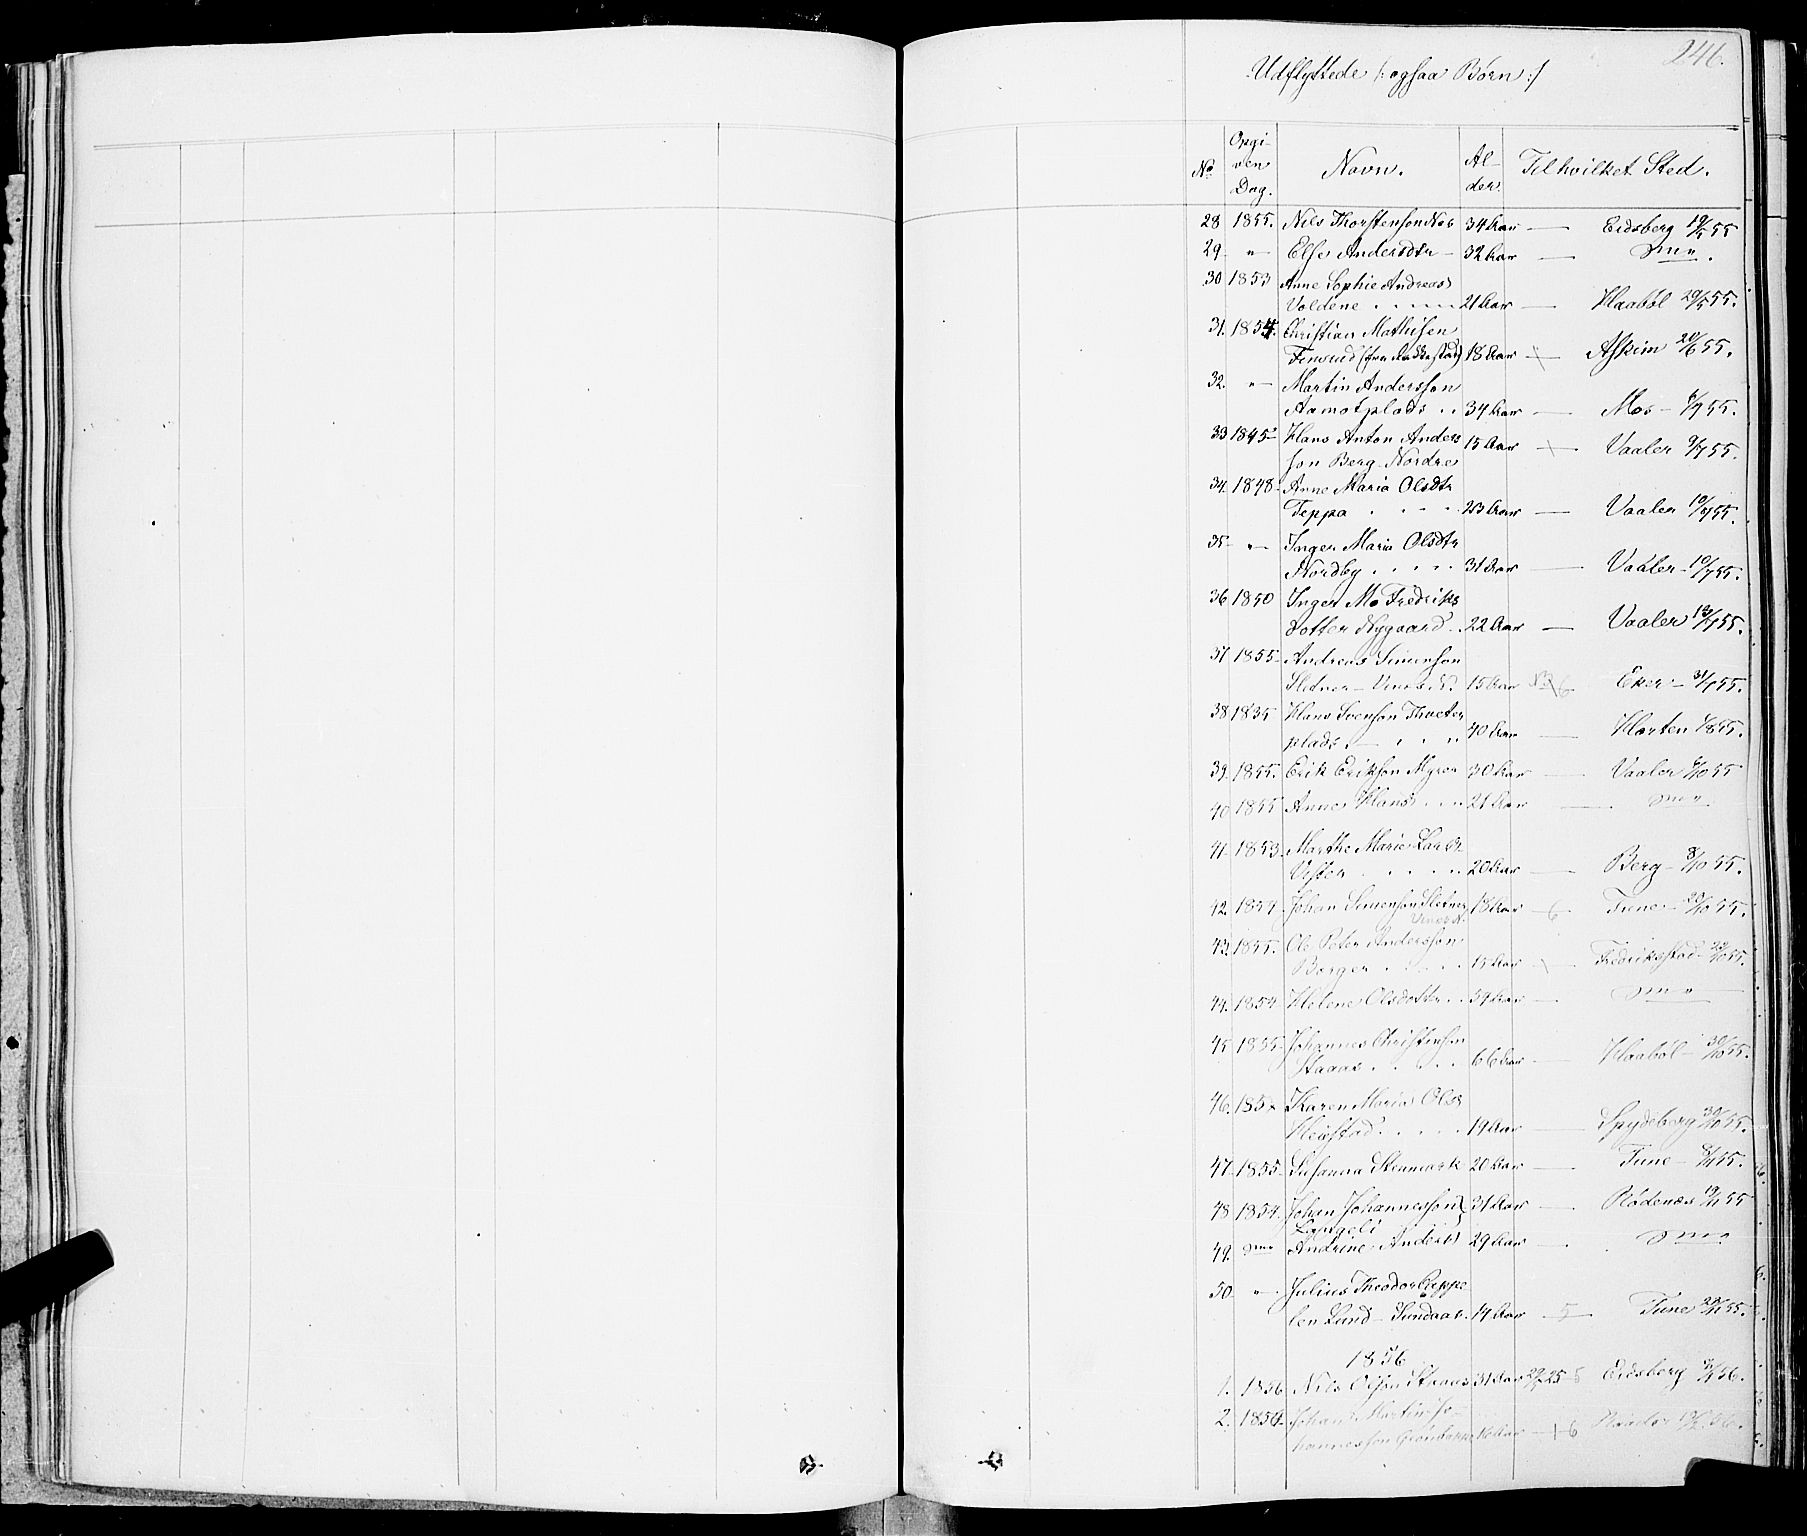 246.
Udflyttede /: ogsaa Børn :/
No Opgiven Dag. Navn. Alder. Til hvilket Sted.
28 1855. Nils Thorstenson Næs 34 Aar — Eidsberg 19/5 55
29. " Else Andersdtr — 32 Aar — Dito.
30 1853 Anne Sophie Andreasd
Voldene 21 Aar — Haabøl 29/5 55.
31. 1854. Christian Mathisen
(fra Rakkestad) 18 Aar — Askim 20/6 55.
32. " — Martin Andersson
Aamotplads 34 Aar — Mos — 6/7 55.
33 1845 Hans Anton Anders
son Berg Nordre 15 Aar — Vaaler 9/7 55.
34. 1848 Anne Maria Olsdtr
Teppa 23 Aar — Vaaler 10/7 55.
35 — " — Inger Maria Olsdtr
Nordby 31 Aar — Vaaler — 10/7 55.
36 1850 Inger Ma Fredriks
dotter Nygaard 22 Aar — Vaaler 13/7 55.
37 1855 Andreas Simenson
Sletner — 15 Aar 6 Eker — 31/7 55.
38. 1835 Hans Svenson Thveter
plads 40 Aar — Horten 1/8 55.
39. 1855. Erik Erikson Myrer 30 Aar — Vaaler 6/10 55
40 1855 Anne Hansd 21 Aar —
41. 1853. Marthe Marie Larsd.
Vister 20 Aar — Berg — 8/10 55.
42. 1854. Johan Simenson Sletner 18 Aar — 6 Tune — 23/10 55.
43. 1855. Ole Peter Andersson
Borger 15 Aar — Fredrikstad 29/10 55.
44. 1854 Helene Olsdottr 59 Aar —
45 1855 Johannes Christenson
Staaas 66 Aar — Haabøl — 30/10 55.
46. 185 Karen Maria Olsd
19 Aar — Spydeberg 30/10 55.
47 — 1855. Susanna Stenmark 20 Aar — Tune — 6/11 55.
48 1854. Johan Johannesson 31 Aar — Rødenæs 19/11 55
Langeli
49. Andrine Andersd 29 Aar —
50 — " — Julius Theodor Cappe
len Lund — Sundaas 14 Aar — 5 — Tune 23/11 55.
1856
1. 1856 Nils Olson Staaas 31 Aar 29/ 25 5 Eidsberg 3/1 56.
2. 1854 Johan Martin Jo
hannesson 16 Aar — 6